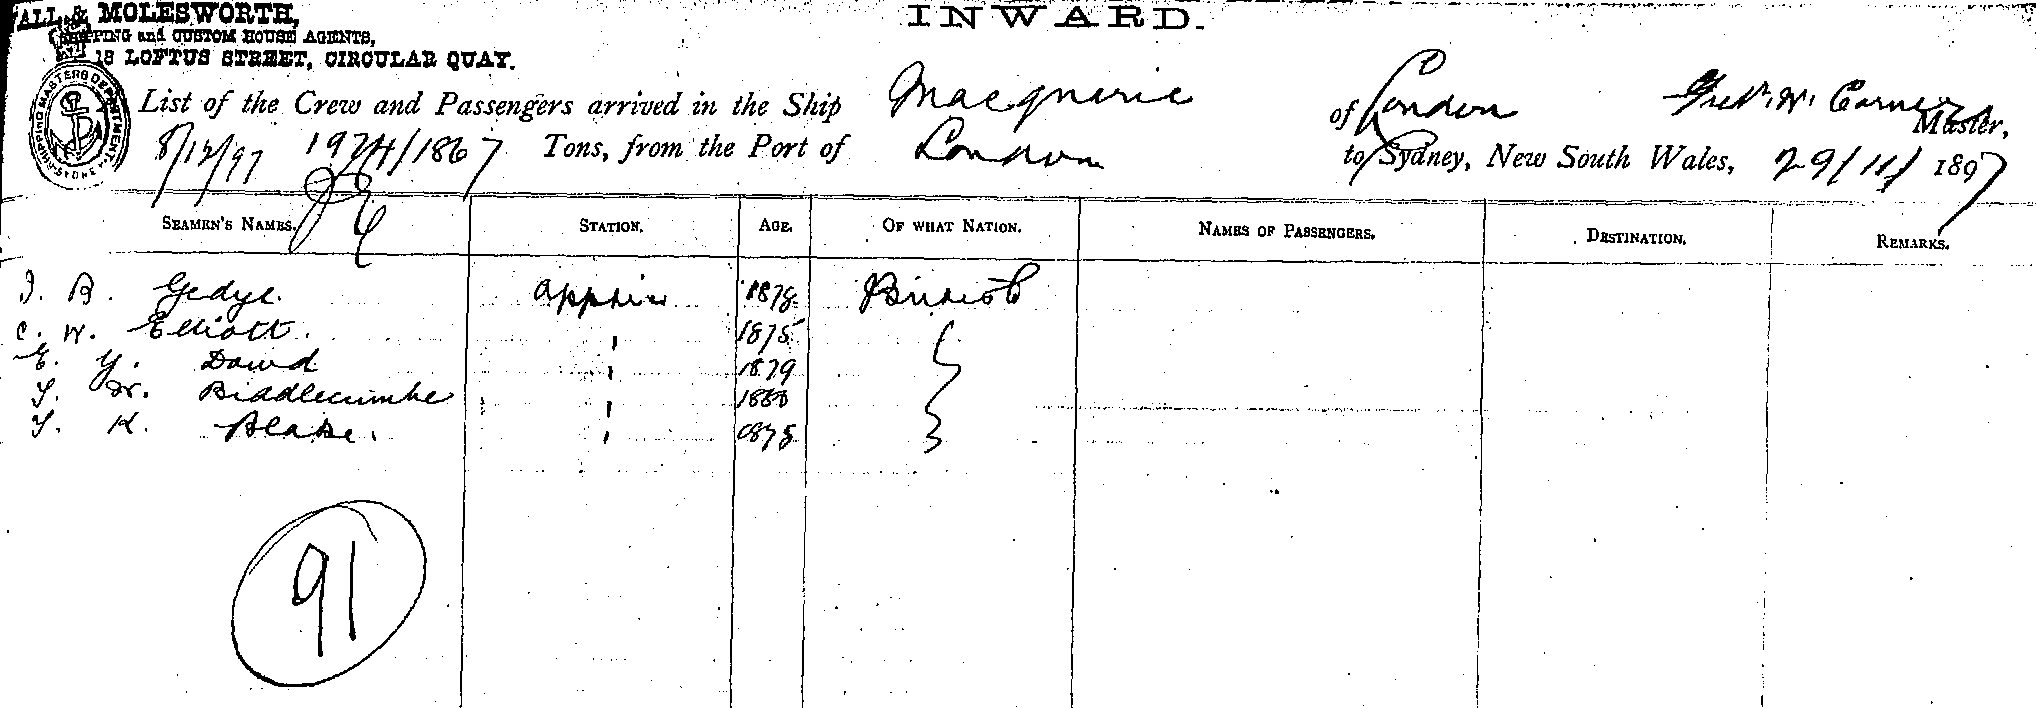 WALL & MOLESWORTH,
SHIPPING and CUSTOM HOUSE AGENTS,
18 LOFTUS STREET, CIRCULAR QUAY.
INWARD.
SHIPPING MASTERS DEPARTMENT SYDNEY
List of the Crew and Passengers arrived in the Ship Macquarie of London Fredk. W. Corner Master,
8/12/97 1974/1867 Tons, from the Port of London to Sydney, New South Wales, 29/11/1897
SEAMEN'S NAMES. STATION. AGE. OF WHAT NATION. NAMES OF PASSENGERS. DESTINATION. REMARKS.
J. B. Gedye. 1878 British
C. W. Elliott. " 1875
E. Y. David " 1879
T. W. Biddlecumbe " 1880
T. K. Blake. " 1878
91